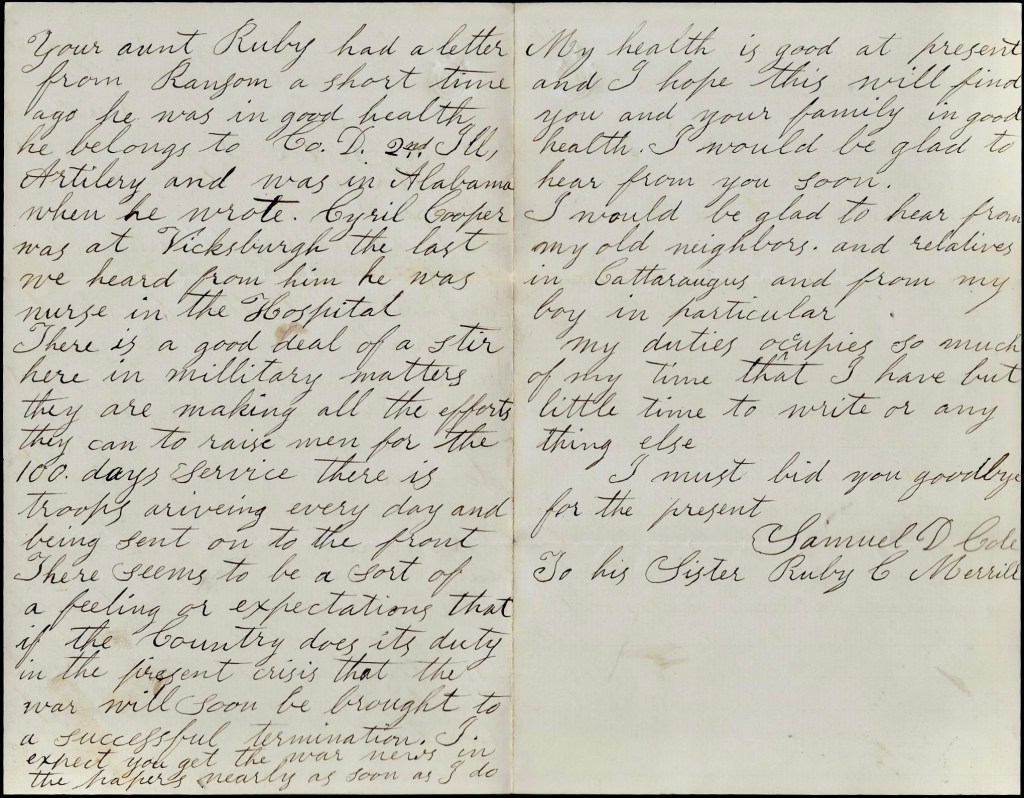 Your aunt Ruby had a letter
from Ransom a short time
ago he was in good health
he belongs to Co. D. 2nd Ill,
Artilery and was in Alabama
when he wrote. Cyril Cooper
was at Vicksburgh the last
we heard from him he was
nurse in the Hospital
There is a good deal of a stir
here in millitary matters
they are making all the efforts
they can to raise men for the
100. days service there is
troops ariveing every day and
being sent on to the front
There seems to be a sort of
a feeling or expectations that
if the Country does its duty
in the present crisis that the
war will soon be brought to
a successful termination. I.
expect you get the war news in
the papers nearly as soon as I do
My health is good at present
and I hope this will find
you and your family in good
health. I would be glad to
hear from you soon.
I would be glad to hear from
my old neighbors. and relatives
in Cattaraugus and from my
boy in particular
my duties ocupies so much
of my time that I have but
little time to write or any
thing else
I must bid you goodbye
for the present
Samuel D Cole
To his Sister Ruby C Merrill